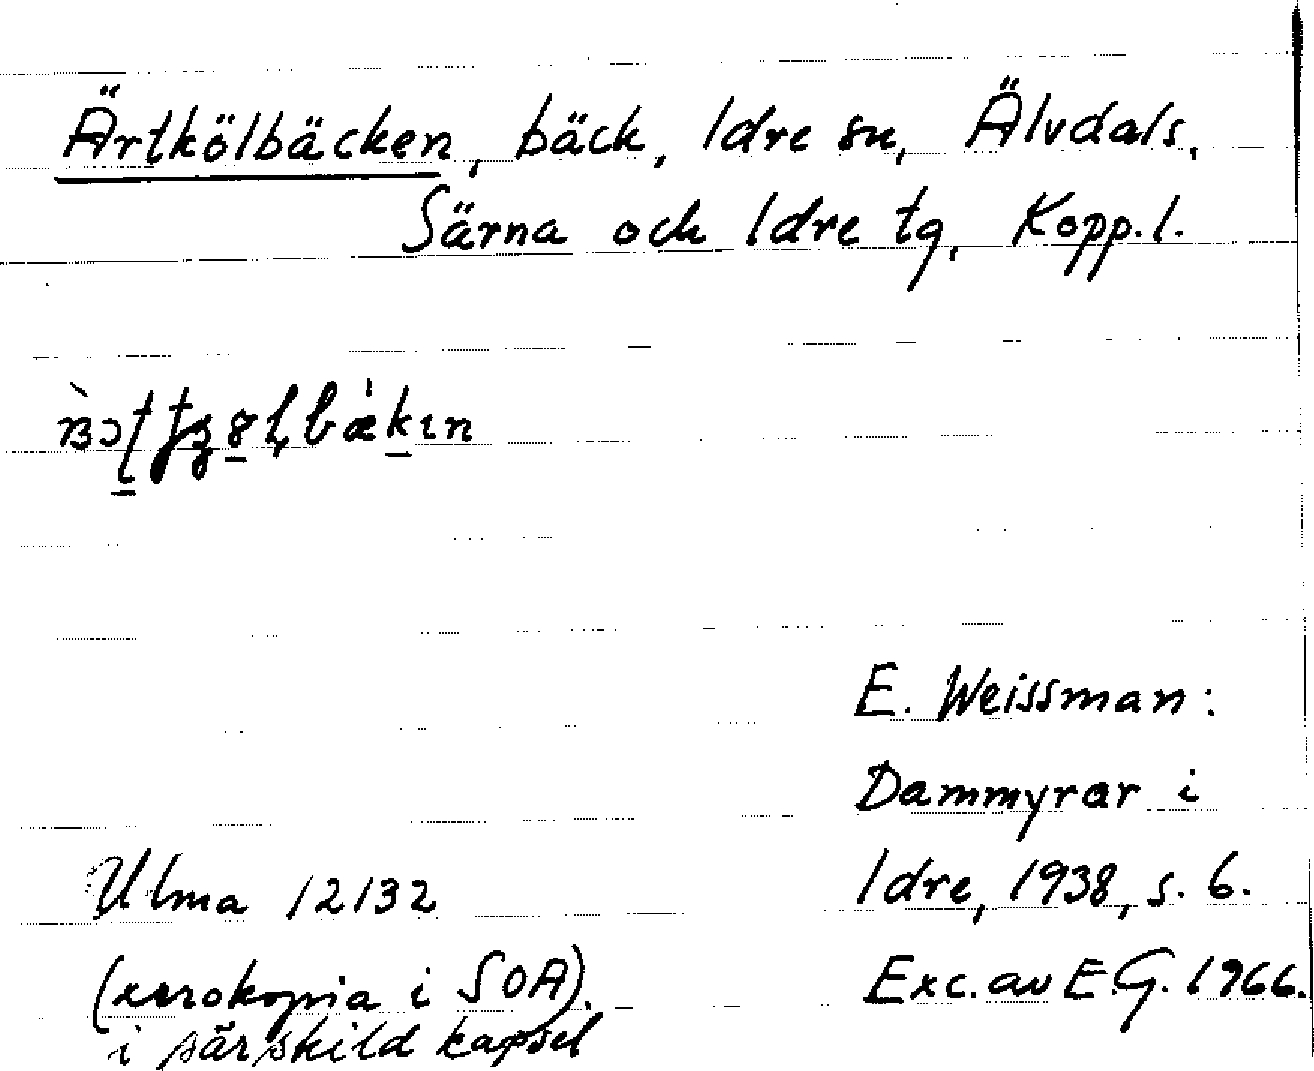 Ärtkölbäcken, bäck, Idre sn, Älvdals,
Särna och Idre tg, Kopp.l.
E. Weissman:
Dammyrar i
Idre, 1938, s. 6.
Exc. av E.G. 1966.
Ulma 12132
(xerokopia i SOA).
i särskild kapsel